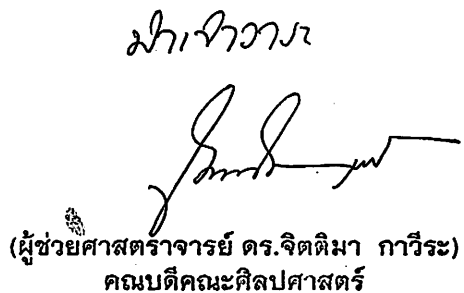 นำเข้าวาระ
(ผู้ช่วยศาสตราจารย์ ดร.จิตติมา  กาวีระ)
คณบดีคณะศิลปศาสตร์